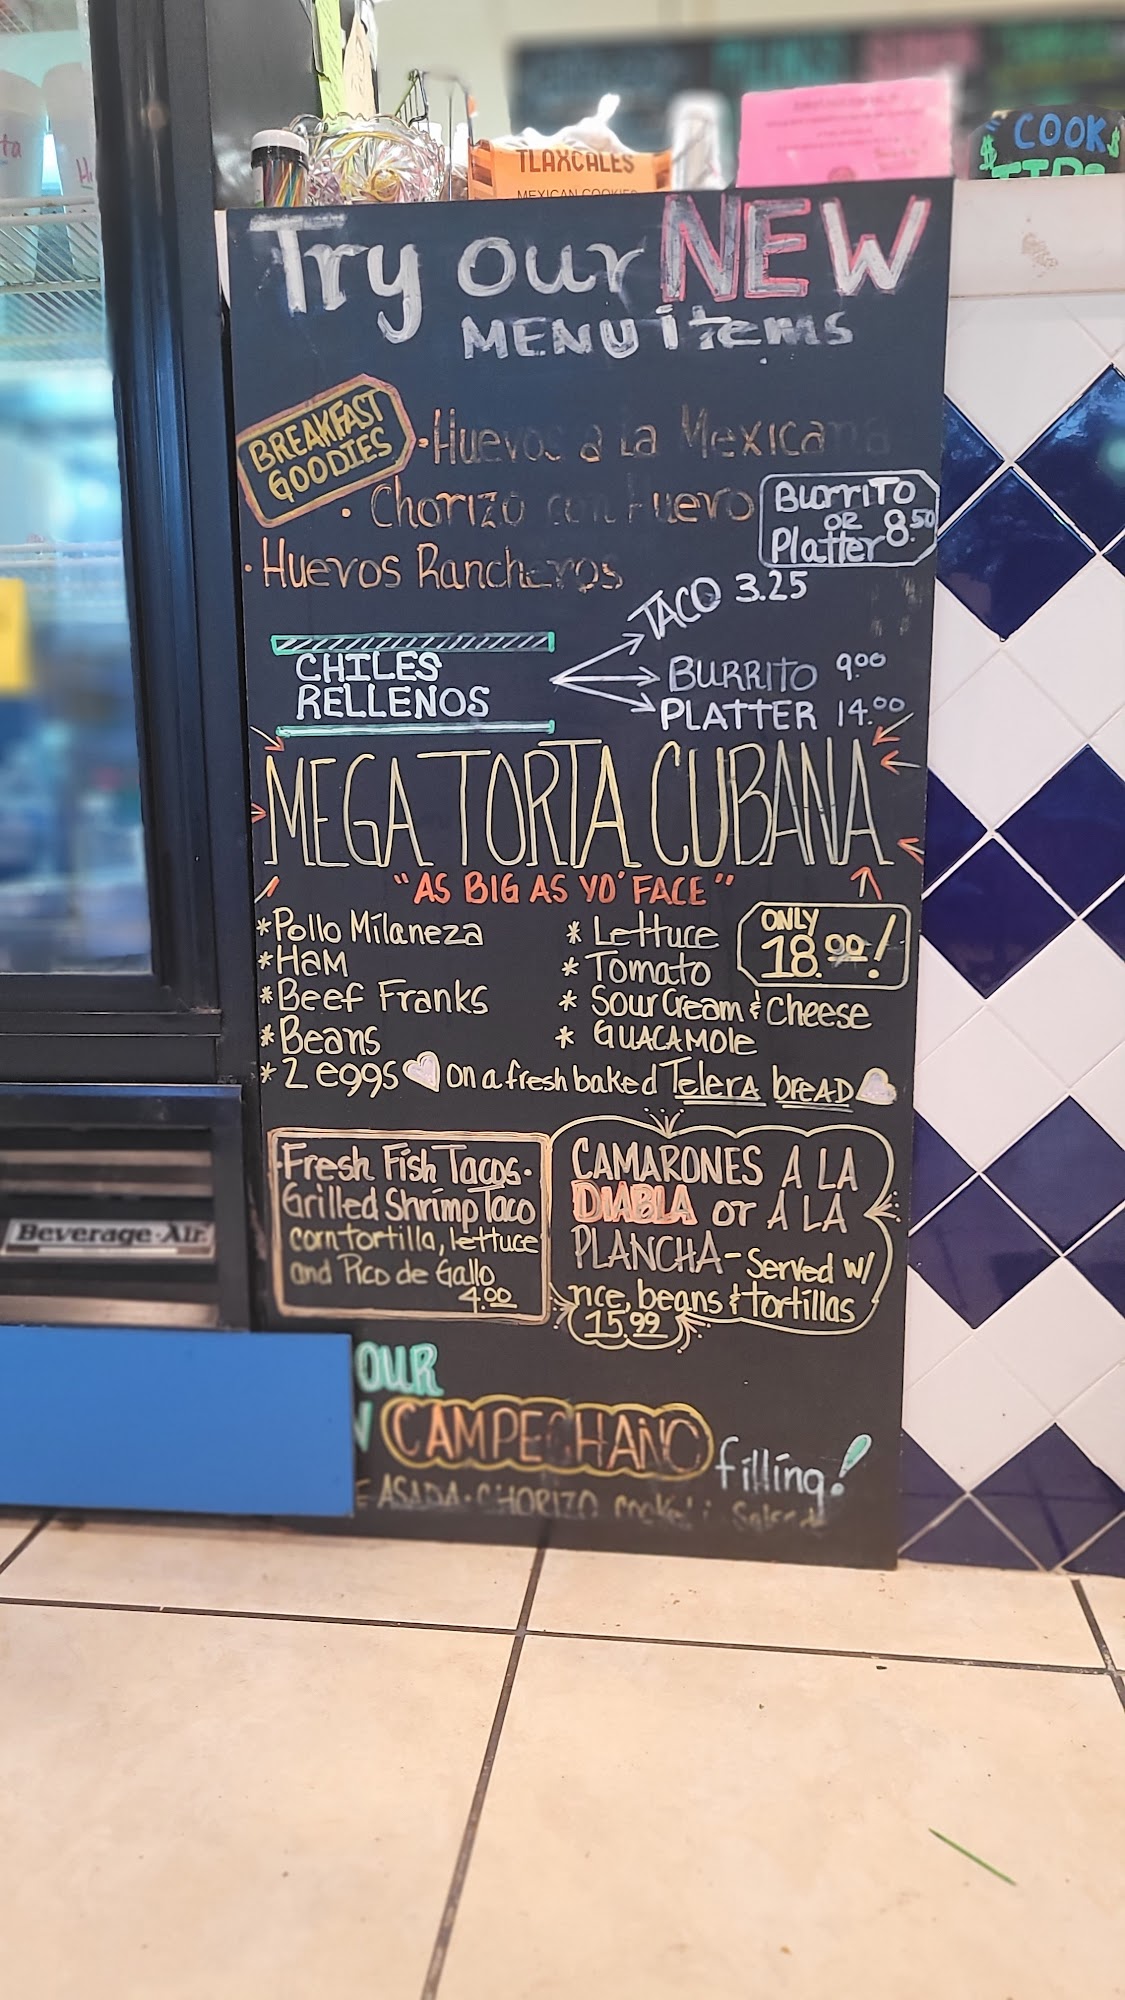 TLAXCALES
MEXICAN COOKIES
COOK
TIPS
Try our NEW
MENU items
BREAKFAST
GOODIES
· Huevos a la Mexicana
· Chorizo con Huevo
· Huevos Rancheros
BURRITO
OR
Platter 8.50
CHILES
RELLENOS
TACO 3.25
BURRITO 9.00
PLATTER 14.00
MEGA TORTA CUBANA
"AS BIG AS YO' FACE"
*Pollo Milaneza
*Ham
*Beef Franks
*Beans
*2 eggs on a fresh baked Telera bread
* Lettuce
* Tomato
* Sour Cream & Cheese
* GUACAMOLE
ONLY
18.00!
Fresh Fish Tacos·
Grilled Shrimp Taco
corn tortilla, lettuce
and Pico de Gallo
4.00
CAMARONES A LA
DIABLA or A LA
PLANCHA - Served w/
rice, beans & tortillas
15.99
OUR
CAMPECHANO filling!
ASADA · CHORIZO
Beverage-Air